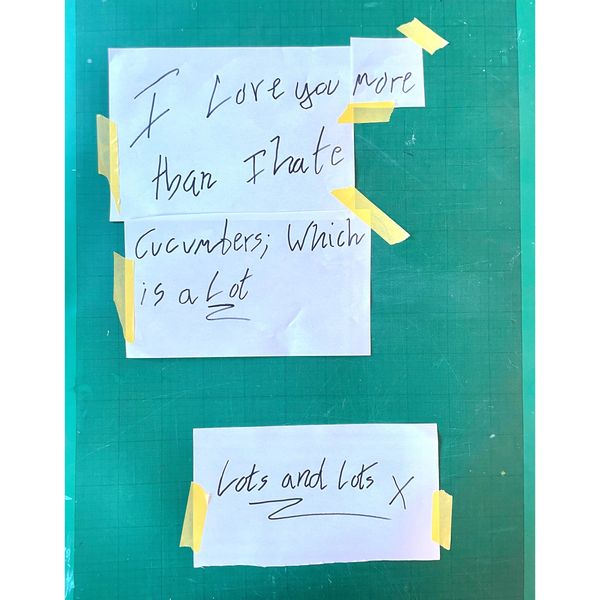 I Love you more
than I hate
Cucumbers; Which
is a Lot
Lots and Lots X